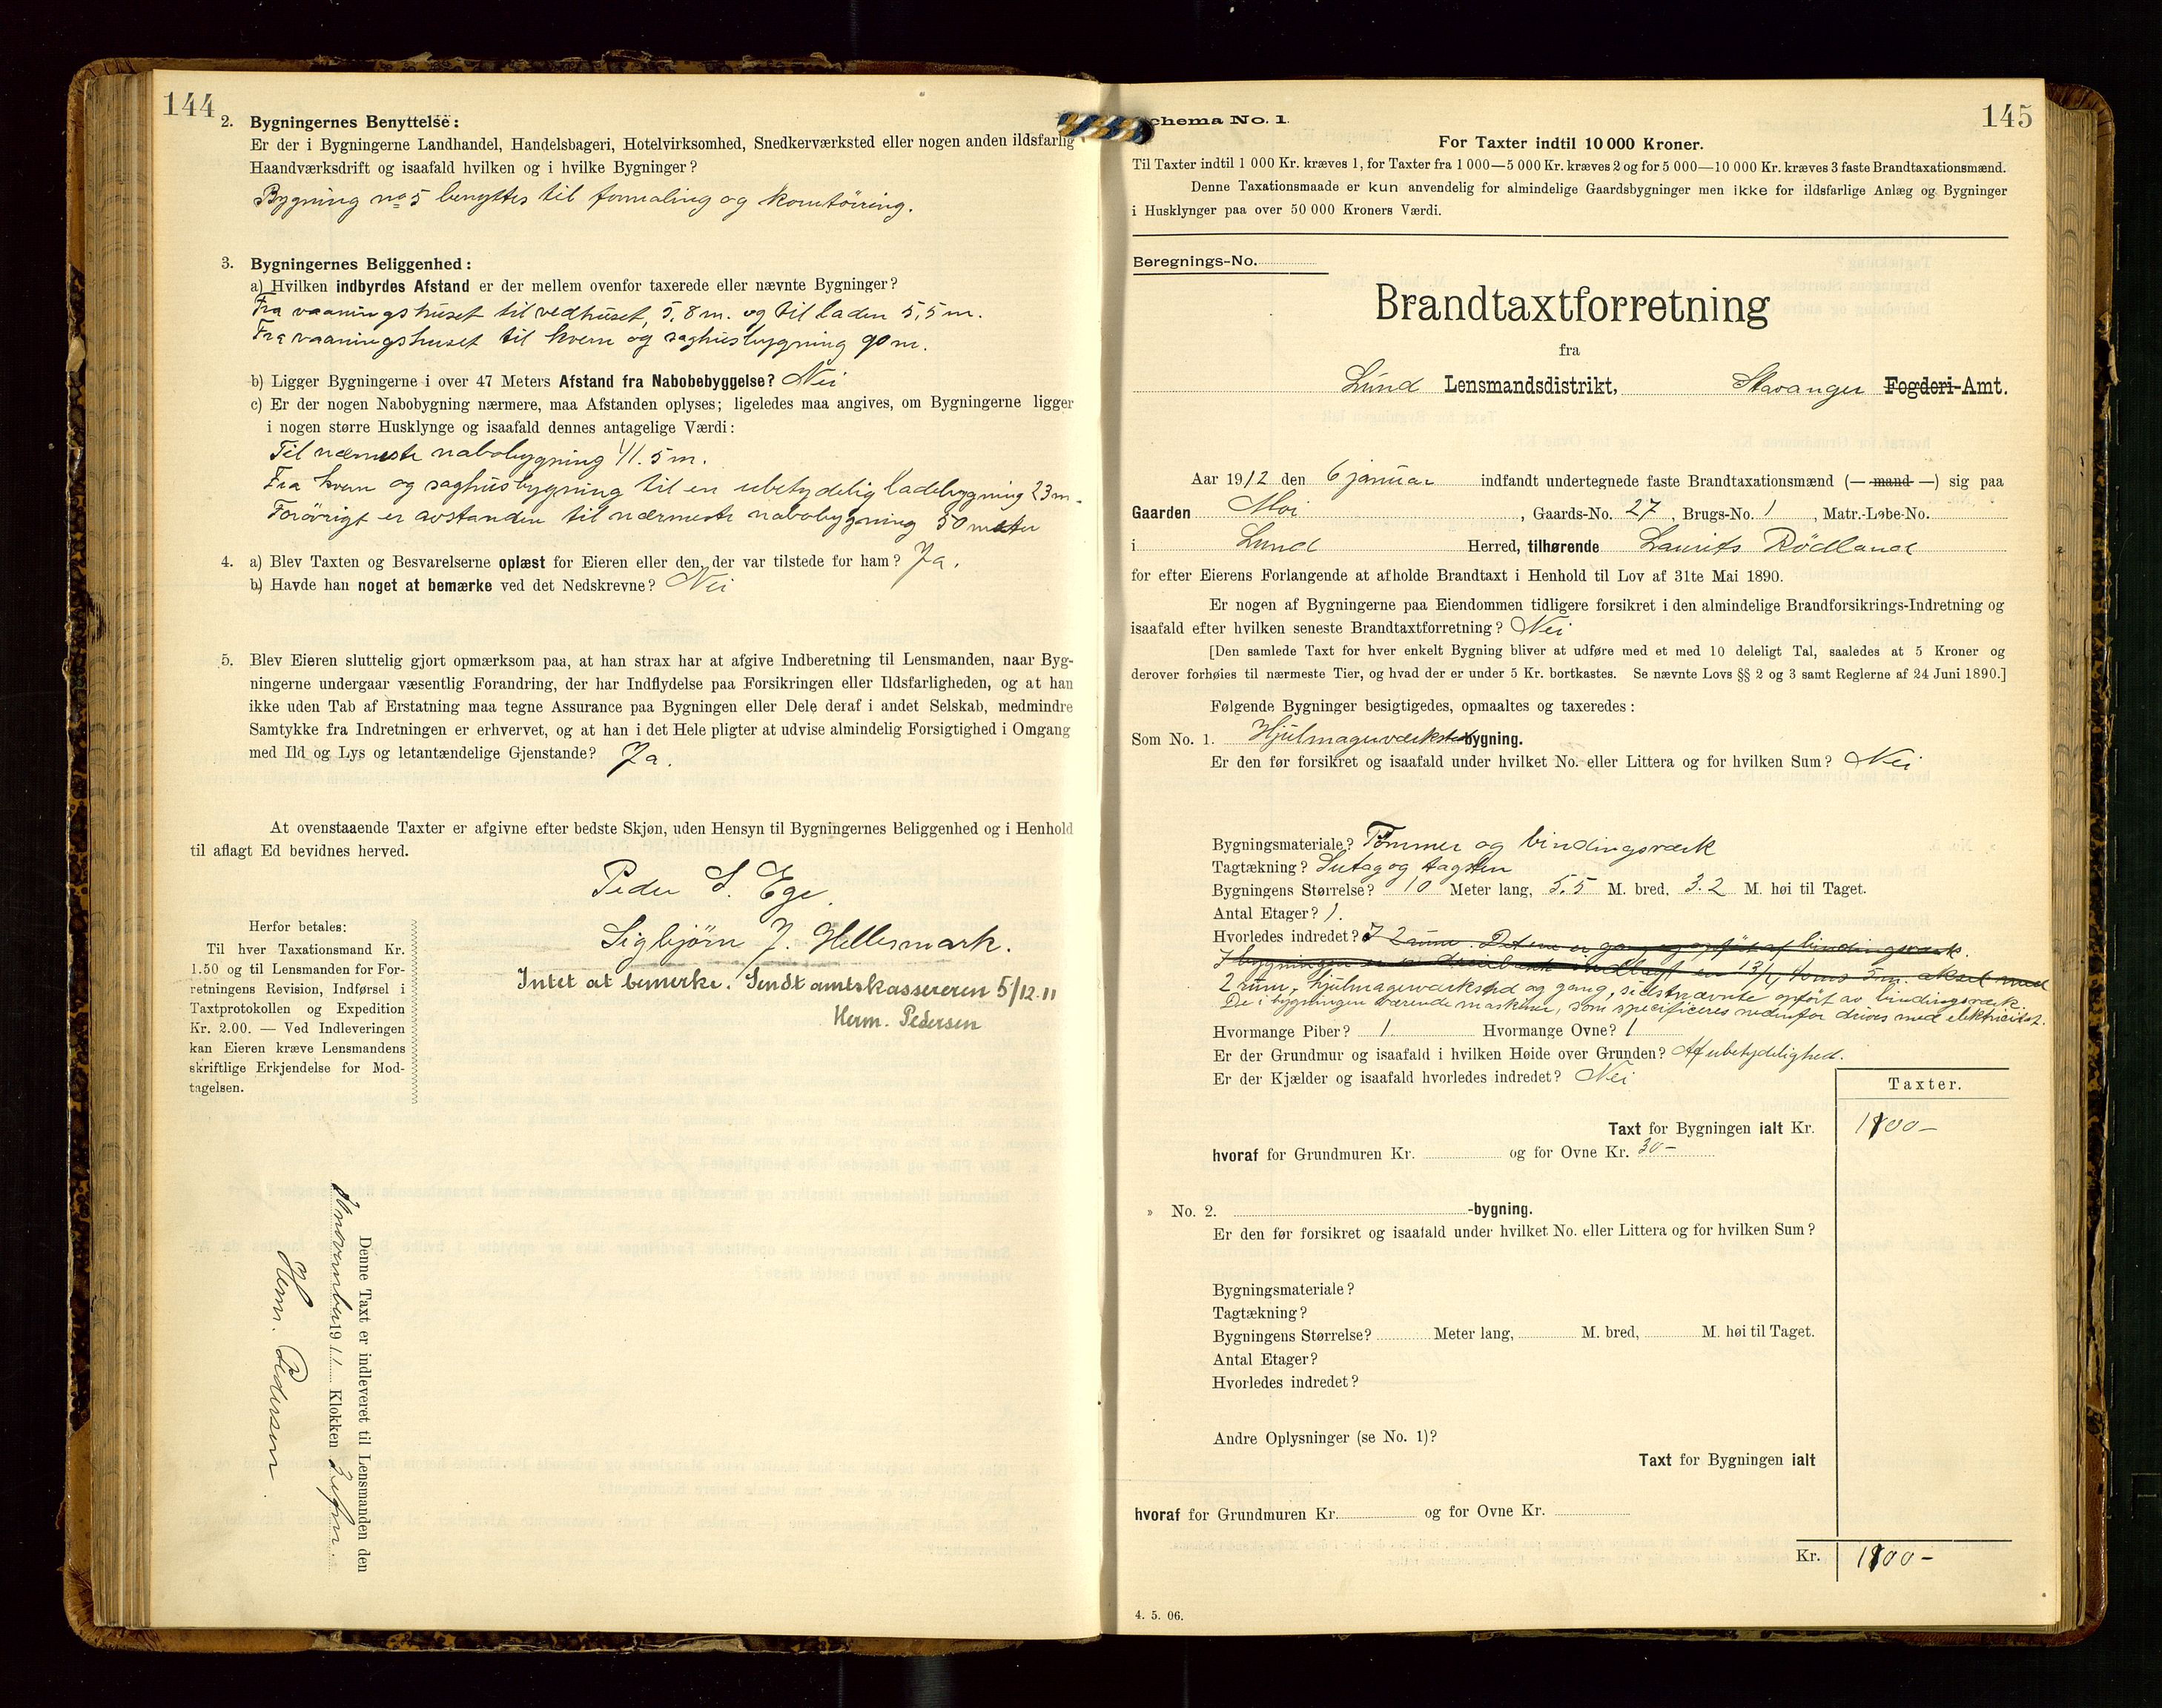 144
2. Bygningernes Benyttelse:
Er der i Bygningerne Landhandel, Handelsbageri, Hotelvirksomhed, Snedkerværksted eller nogen anden ildsfarlig
Haandværksdrift og isaafald hvilken og i hvilke Bygninger?
Bygning no 5 benyttes til formaling og korntöiring.
3. Bygningernes Beliggenhed:
a) Hvilken indbyrdes Afstand er der mellem ovenfor taxerede eller nævnte Bygninger?
Fra vaaningshuset til vedhuset, 5,8 m. og til laden 5,5 m.
Fra vaaningshuset til kvern og saghusbygning 90 m.
b) Ligger Bygningerne i over 47 Meters Afstand fra Nabobebyggelse? Nei
c) Er der nogen Nabobygning nærmere, maa Afstanden oplyses; ligeledes maa angives, om Bygningerne ligger
i nogen større Husklynge og isaafald dennes antagelige Værdi:
Til nærmeste nabobygning 41.5 m.
Fra kvern og saghusbygning til en ubetydelig ladebygning 23 m.
Forövrigt er avstanden til nærmeste nabobygning 50 meter
4. a) Blev Taxten og Besvarelserne oplæst for Eieren eller den, der var tilstede for ham? Ja.
b) Havde han noget at bemærke ved det Nedskrevne? Nei
5. Blev Eieren sluttelig gjort opmærksom paa, at han strax har at afgive Indberetning til Lensmanden, naar Byg-
ningerne undergaar væsentlig Forandring, der har Indflydelse paa Forsikringen eller Ildsfarligheden, og at han
ikke uden Tab af Erstatning maa tegne Assurance paa Bygningen eller Dele deraf i andet Selskab, medmindre
Samtykke fra Indretningen er erhvervet, og at han i det Hele pligter at udvise almindelig Forsigtighed i Omgang
med Ild og Lys og letantændelige Gjenstande? Ja.
At ovenstaaende Taxter er afgivne efter bedste Skjøn, uden Hensyn til Bygningernes Beliggenhed og i Henhold
til aflagt Ed bevidnes herved.
Peder S. Ege.
Sigbjörn J. Hellesmark.
Intet at bemerke. Sendt amtskassereren 5/12.11
Herm. Pedersen
Herfor betales:
Til hver Taxationsmand Kr.
1.50 og til Lensmanden for For-
retningens Revision, Indførsel i
Taxtprotokollen og Expedition
Kr. 2.00. — Ved Indleveringen
kan Eieren kræve Lensmandens
skriftlige Erkjendelse for Mod-
tagelsen.
Denne Taxt er indleveret til Lensmanden den
november 1911 Klokken
Herm. Pedersen
145
Schema No. 1.
For Taxter indtil 10 000 Kroner.
Til Taxter indtil 1 000 Kr. kræves 1, for Taxter fra 1 000—5 000 Kr. kræves 2 og for 5 000—10 000 Kr. kræves 3 faste Brandtaxationsmænd.
Denne Taxationsmaade er kun anvendelig for almindelige Gaardsbygninger men ikke for ildsfarlige Anlæg og Bygninger
i Husklynger paa over 50 000 Kroners Værdi.
Beregnings-No.
Brandtaxtforretning
fra
Lund Lensmandsdistrikt, Stavanger Fogderi-Amt.
Aar 1912 den 6 januar indfandt undertegnede faste Brandtaxationsmænd (— mand —) sig paa
Gaarden Moi, Gaards-No. 27, Brugs-No. 1, Matr.-Løbe-No.
i Lund Herred, tilhørende Laurits Rödland
for efter Eierens Forlangende at afholde Brandtaxt i Henhold til Lov af 31te Mai 1890.
Er nogen af Bygningerne paa Eiendommen tidligere forsikret i den almindelige Brandforsikrings-Indretning og
isaafald efter hvilken seneste Brandtaxtforretning? Nei
[Den samlede Taxt for hver enkelt Bygning bliver at udføre med et med 10 deleligt Tal, saaledes at 5 Kroner og
derover forhøies til nærmeste Tier, og hvad der er under 5 Kr. bortkastes. Se nævnte Lovs §§ 2 og 3 samt Reglerne af 24 Juni 1890.]
Følgende Bygninger besigtigedes, opmaaltes og taxeredes:
Som No. 1. Hjulmagerværkstedbygning.
Er den før forsikret og isaafald under hvilket No. eller Littera og for hvilken Sum? Nei
Bygningsmateriale? Tømmer og bindingsværk
Tagtækning? Sutag og tagsten
Bygningens Størrelse? 10 Meter lang, 5.5 M. bred, 3.2 M. høi til Taget.
Antal Etager? 1.
Hvorledes indredet? I 2 rum. Det ene er gang og opført af bindingsværk.
I bygningen er
2 rum, hjulmagerværksted og gang, sidstnævnte opført av bindingsværk.
De i bygningen værende maskiner, som specificeres nedenfor drives med elektricitet.
Hvormange Piber? 1 Hvormange Ovne? 1
Er der Grundmur og isaafald i hvilken Høide over Grunden? Af ubetydelighed.
Er der Kjælder og isaafald hvorledes indredet? Nei
Taxter.
Taxt for Bygningen ialt Kr. 1100-
hvoraf for Grundmuren Kr. og for Ovne Kr. 30-
» No. 2. -bygning.
Er den før forsikret og isaafald under hvilket No. eller Littera og for hvilken Sum?
Bygningsmateriale?
Tagtækning?
Bygningens Størrelse? Meter lang, M. bred, M. høi til Taget.
Antal Etager?
Hvorledes indredet?
Andre Oplysninger (se No. 1)?
Taxt for Bygningen ialt
hvoraf for Grundmuren Kr. og for Ovne Kr.
Kr. 1100-
4. 5. 06.